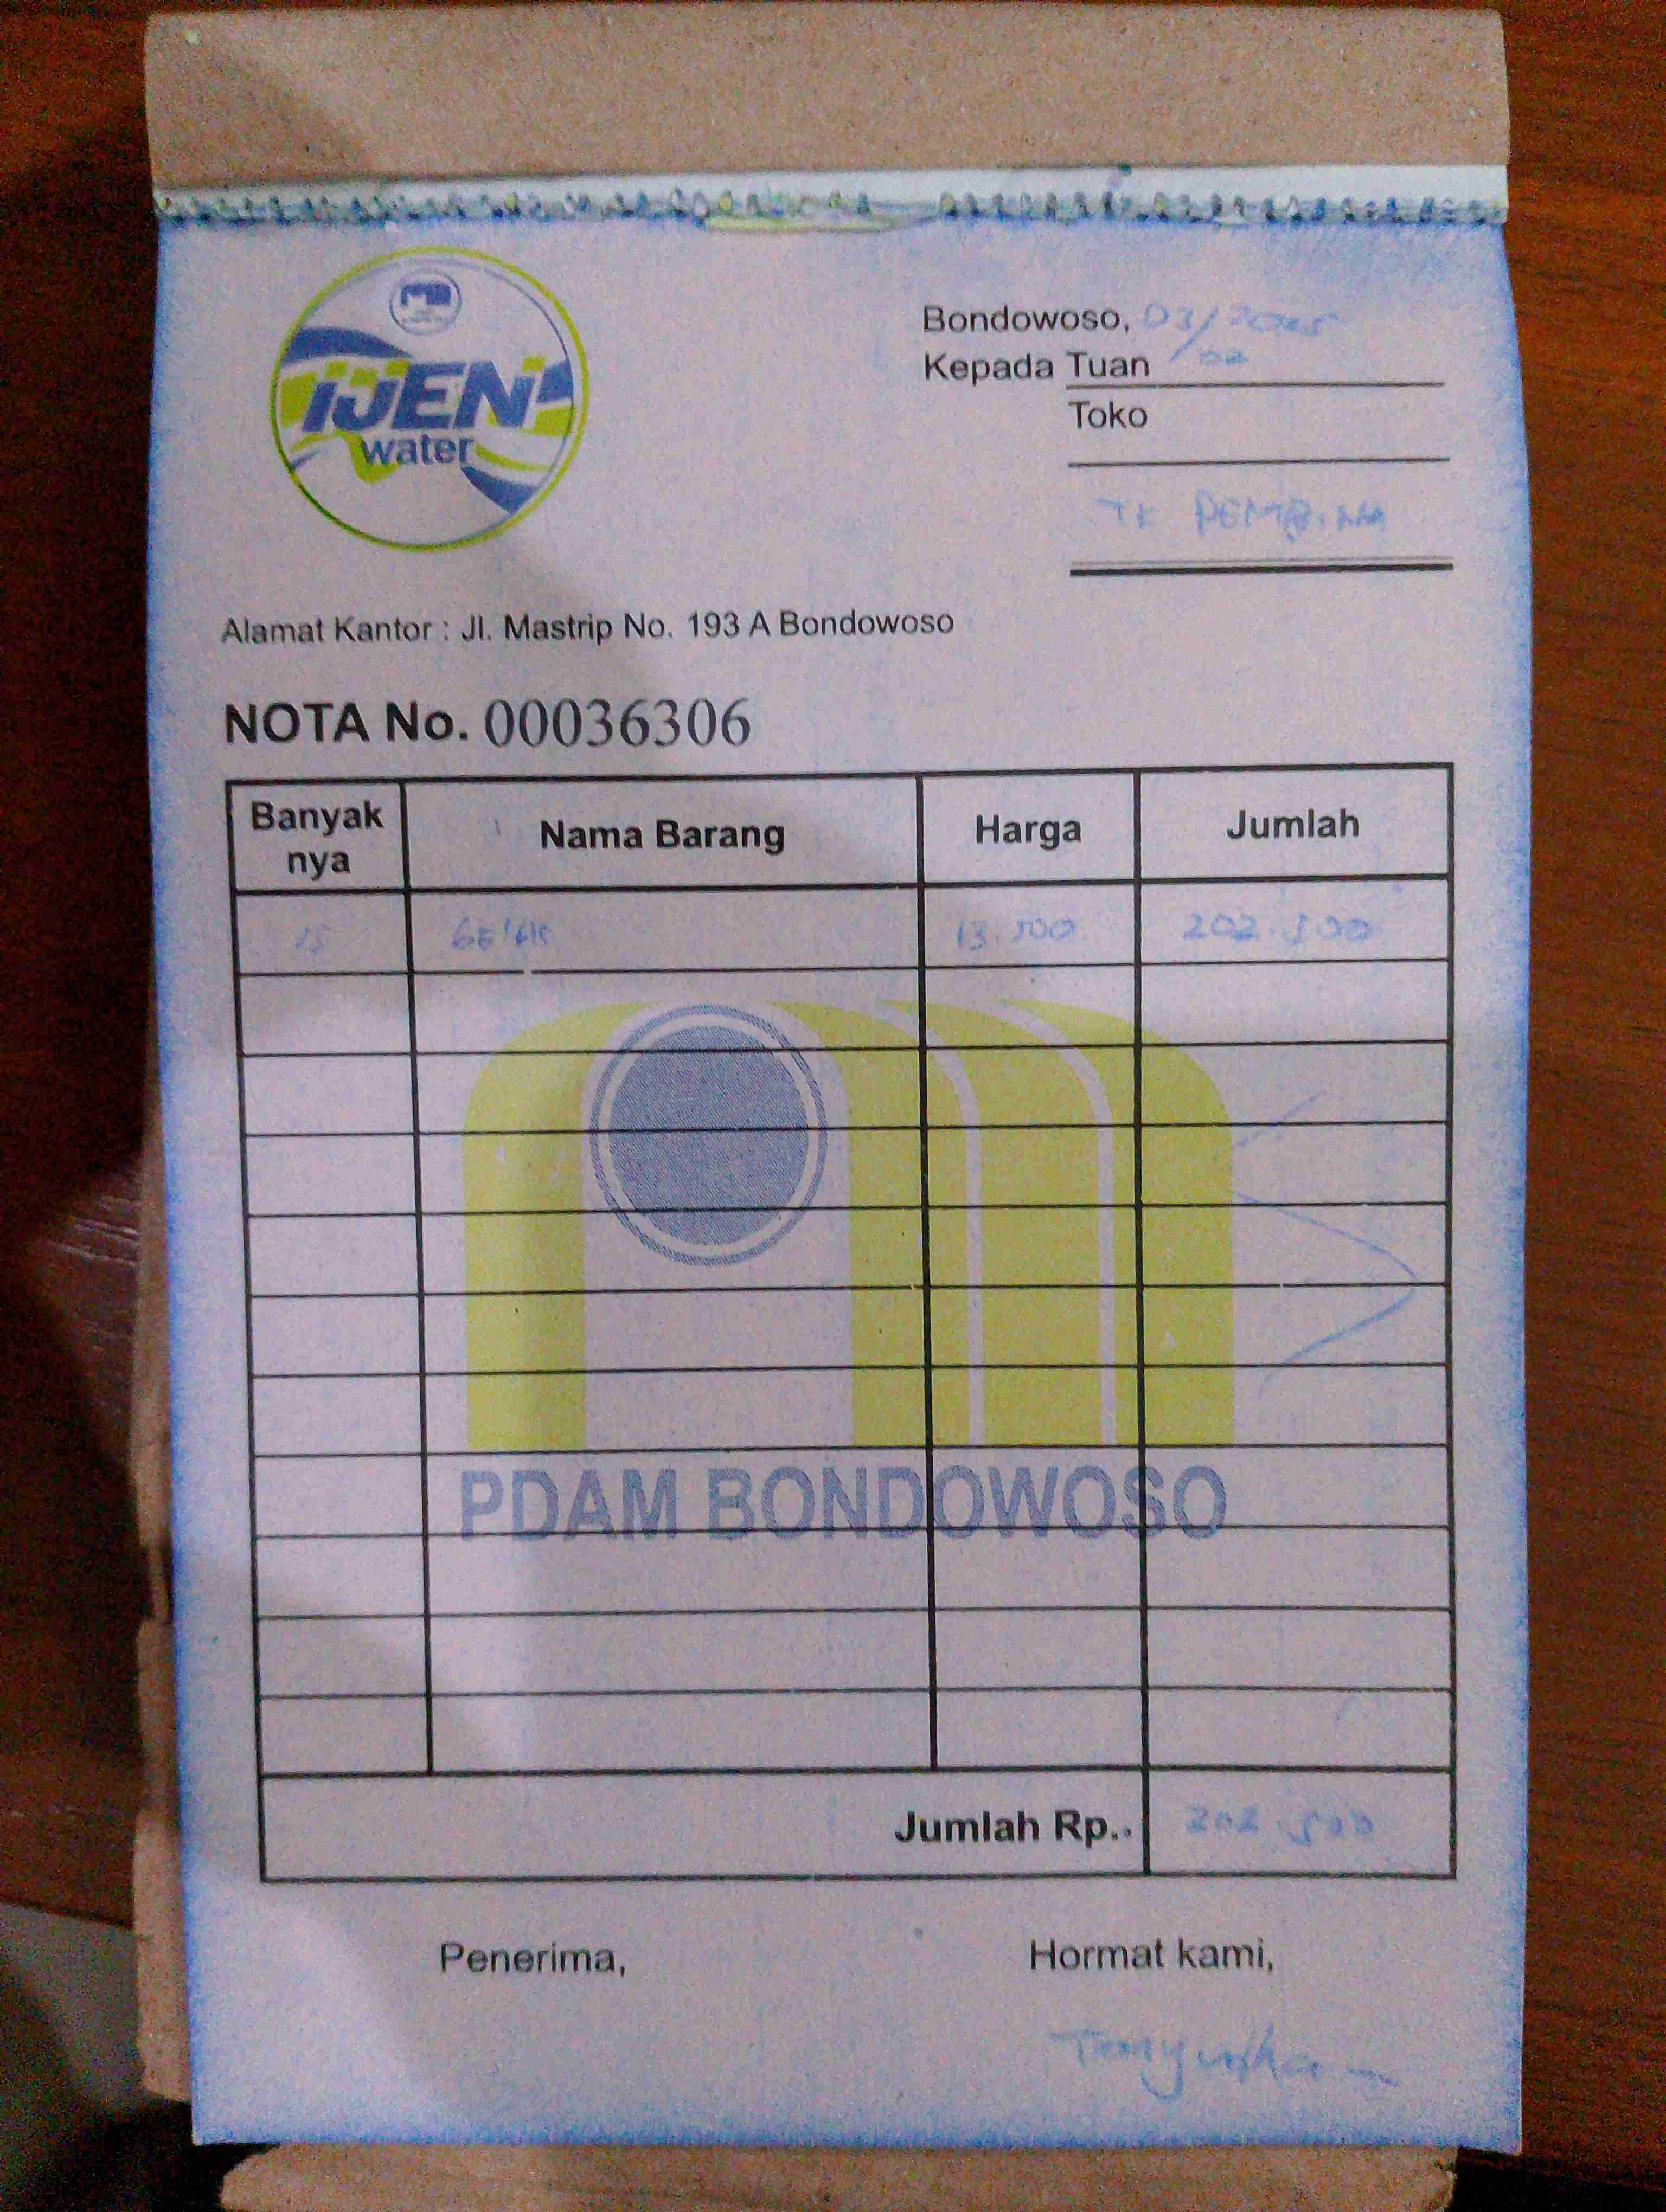 IJEN
water
Bondowoso, 03/02 2025
Kepada Tuan
Toko
TK PEMBINA
Alamat Kantor : Jl. Mastrip No. 193 A Bondowoso
NOTA No. 00036306
Banyak nya Nama Barang Harga Jumlah
15 13.500 202.500
PDAM BONDOWOSO
Jumlah Rp.. 202.500
Penerima, Hormat kami,